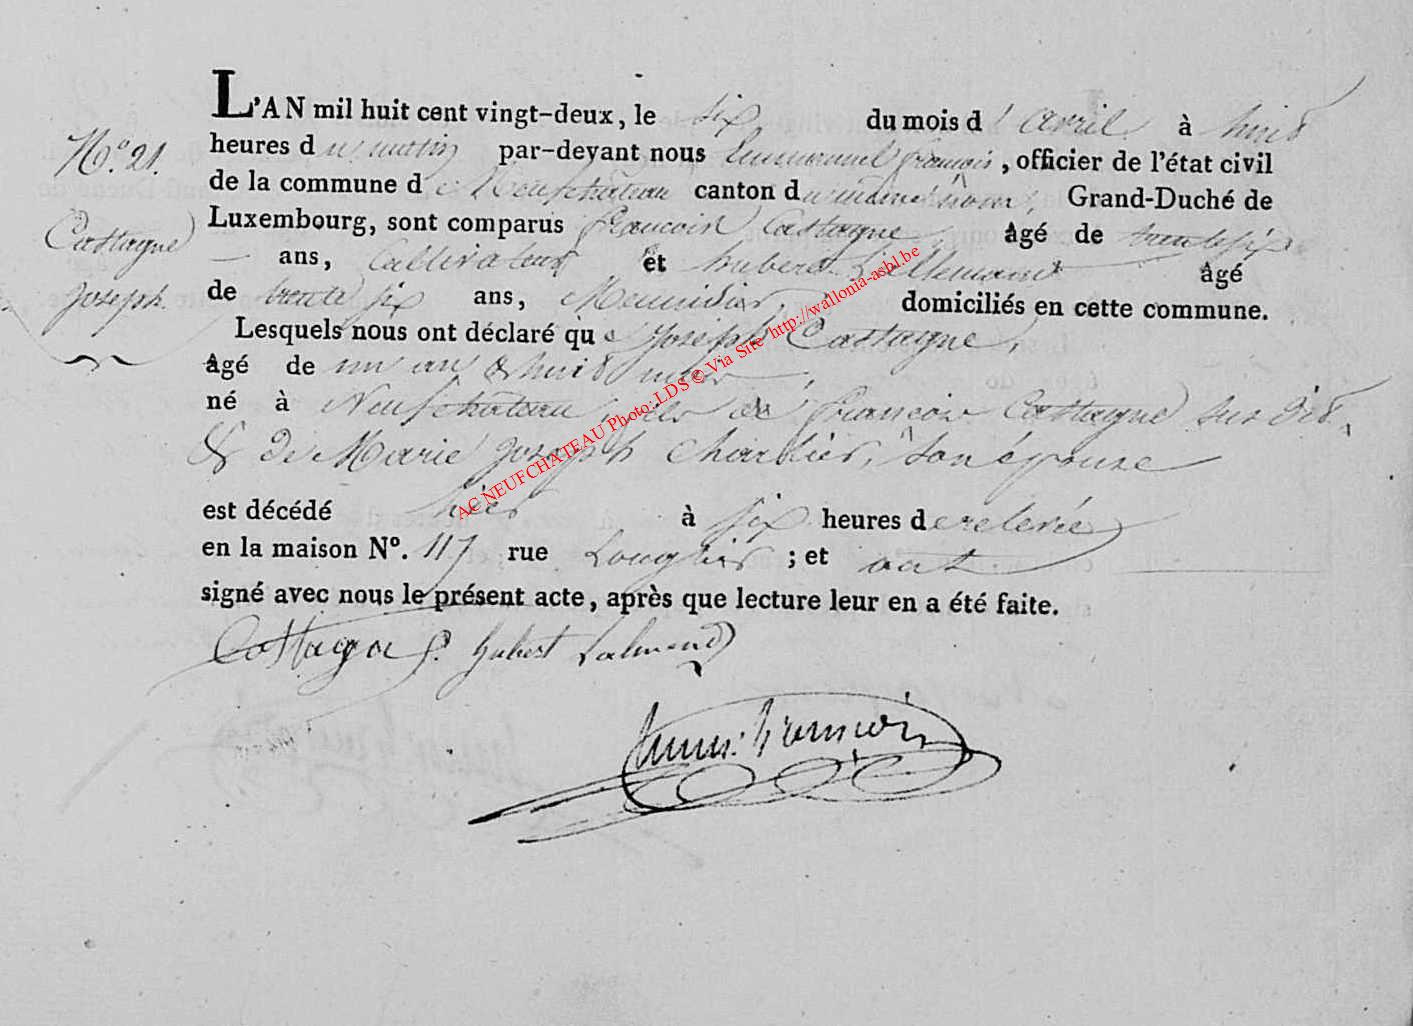 L'AN mil huit cent vingt-deux, le six du mois d'avril à huit
N.° 21. heures du matin par-devant nous Emmanuel françois, officier de l'état civil
de la commune de Neufchateau canton du même nom, Grand-Duché de
Castagne Luxembourg, sont comparus françois Castagne, âgé de trente six
Joseph. — ans, Cultivateur et hubert Lallemant âgé
de trente six ans, Menuisier, domiciliés en cette commune.
Lesquels nous ont déclaré que Joseph Castagne,
âgé de un an & huit mois
né à Neufchateau, fils de françois Castagne sus dit
& de Marie Joseph Charlier, son épouse
est décédé hier à six heures de relevée
en la maison N°. 117 rue Longlier ; et ont
signé avec nous le présent acte, après que lecture leur en a été faite.
Castagne f. hubert Lalmend
Emm: françois
AC NEUFCHATEAU Photo: LDS © Via Site http://wallonia-asbl.be